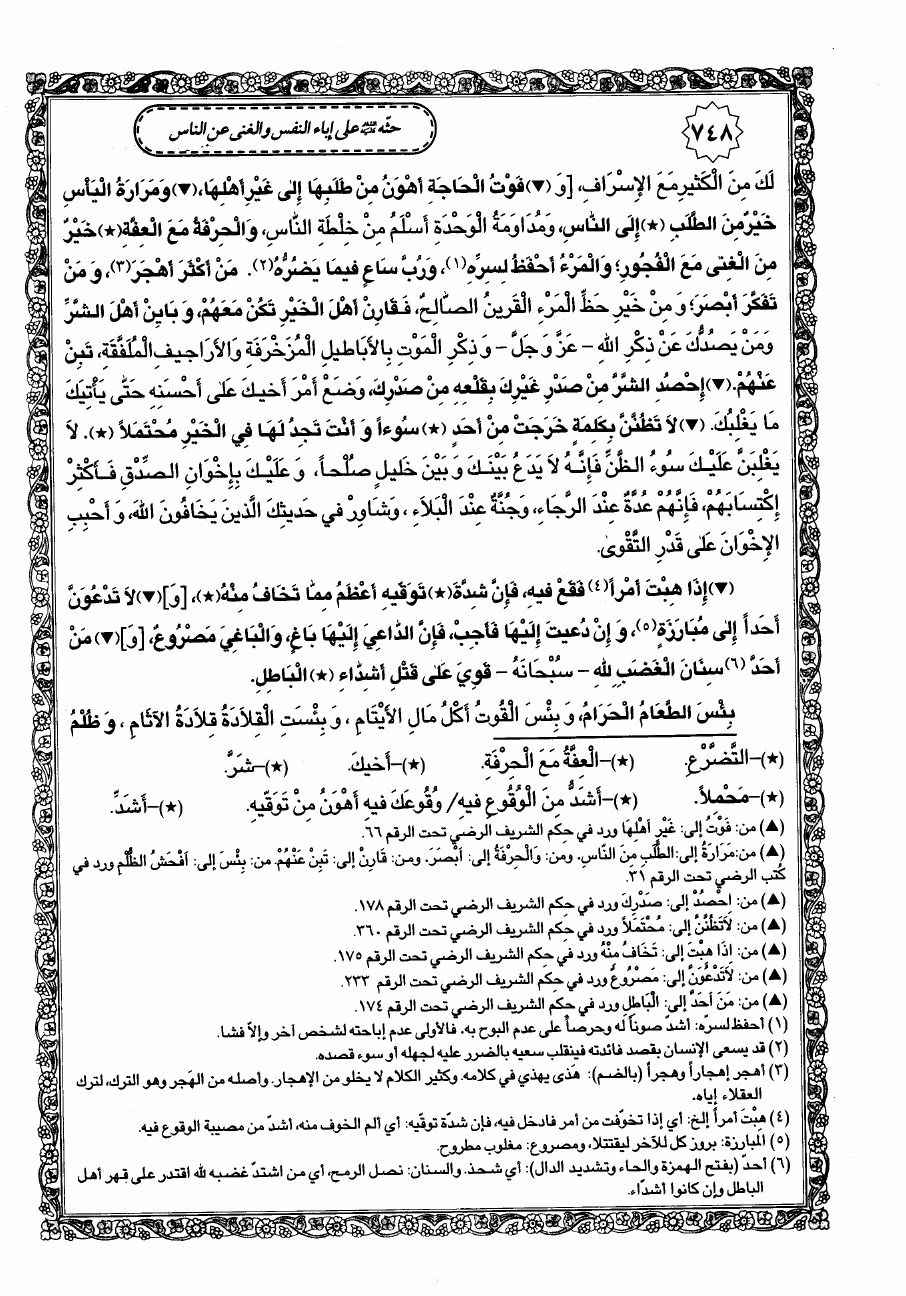 ٧٤٨
حثّه ﷺ على إباء النفس والغنى عن الناس
لَكَ مِنَ الْكَثيرِ مَعَ الإِسْرَافِ، [وَ (▼) فَوْتُ الْحَاجَةِ أَهْوَنُ مِنْ طَلَبِهَا إِلى غَيْرِ أَهْلِهَا، (▼) وَمَرَارَةُ الْيَأْسِ
خَيْرٌ مِنَ الطَّلَبِ (★) إِلَى النَّاسِ، وَمُدَاوَمَةُ الْوَحْدَةِ أَسْلَمُ مِنْ خِلْطَةِ النَّاسِ، وَالْحِرْفَةُ مَعَ الْعِفَّةِ (★) خَيْرٌ
مِنَ الْغِنى مَعَ الْفُجُورِ؛ وَالْمَرْءُ أَحْفَظُ لِسِرِّهِ (١)، وَرُبَّ سَاعٍ فيمَا يَضُرُّهُ (٢). مَنْ أَكْثَرَ أَهْجَرَ (٣)، وَ مَنْ
تَفَكَّرَ أَبْصَرَ؛ وَ مِنْ خَيْرِ حَظِّ الْمَرْءِ الْقَرينُ الصَّالِحُ، فَقَارِنْ أَهْلَ الْخَيْرِ تَكُنْ مَعَهُمْ، وَ بَايِنْ أَهْلَ الشَّرِّ
وَمَنْ يَصُدُّكَ عَنْ ذِكْرِ اللهِ - عَزَّ وَ جَلَّ - وَ ذِكْرِ الْمَوْتِ بِالأَبَاطيلِ الْمُزَخْرَفَةِ وَالأَرَاجيفِ الْمُلَفَّقَةِ، تَبِنْ
عَنْهُمْ. (▼) إِحْصُدِ الشَّرَّ مِنْ صَدْرِ غَيْرِكَ بِقَلْعِهِ مِنْ صَدْرِكَ، وَضَعْ أَمْرَ أَخيكَ عَلى أَحْسَنِهِ حَتّى يَأْتِيَكَ
مَا يَغْلِبُكَ. (▼) لاَ تَظُنَّنَّ بِكَلِمَةٍ خَرَجَتْ مِنْ أَحَدٍ (★) سُوءاً وَ أَنْتَ تَجِدُ لَهَا فِي الْخَيْرِ مُحْتَمَلاً (★). لاَ
يَغْلِبَنَّ عَلَيْكَ سُوءُ الظَّنِّ فَإِنَّهُ لاَ يَدَعُ بَيْنَكَ وَ بَيْنَ خَليلٍ صُلْحاً، وَ عَلَيْكَ بِإِخْوَانِ الصِّدْقِ فَأَكْثِرْ
إِكْتِسَابَهُمْ، فَإِنَّهُمْ عُدَّةٌ عِنْدَ الرَّجَاءِ، وَجُنَّةٌ عِنْدَ الْبَلاَءِ، وَشَاوِرْ في حَديثِكَ الَّذينَ يَخَافُونَ اللهَ، وَ أَحْبِبِ
الإِخْوَانَ عَلى قَدْرِ التَّقْوى.
(▼) إِذَا هِبْتَ أَمْراً (٤) فَقَعْ فيهِ، فَإِنَّ شِدَّةَ (★) تَوَقّيهِ أَعْظَمُ مِمَّا تَخَافُ مِنْهُ (★)، [وَ] (▼) لاَ تَدْعُوَنَّ
أَحَداً إِلى مُبَارَزَةٍ (٥)، وَ إِنْ دُعيتَ إِلَيْهَا فَأَجِبْ، فَإِنَّ الدَّاعِيَ إِلَيْهَا بَاغٍ، وَالْبَاغِيَ مَصْرُوعٌ، [وَ] (▼) مَنْ
أَحَدَّ (٦) سِنَانَ الْغَضَبِ لِلّهِ - سُبْحَانَهُ - قَوِيَ عَلى قَتْلِ أَشِدَّاءِ (★) الْبَاطِلِ.
بِئْسَ الطَّعَامُ الْحَرَامُ، وَ بِئْسَ الْقُوتُ أَكْلُ مَالِ الأَيْتَامِ، وَ بِئْسَتِ الْقِلاَدَةُ قِلاَدَةُ الآثَامِ، وَ ظُلْمُ
(★)-التَّضَرُّعِ. (★)-الْعِفَّةُ مَعَ الْحِرْفَةِ. (★)-أَخيكَ. (★)-شَرَّ.
(★)-مَحْمَلاً. (★)-أَشَدُّ مِنَ الْوُقُوعِ فيهِ/ وُقُوعَكَ فيهِ أَهْوَنُ مِنْ تَوَقّيهِ. (★)-أَشَدِّ.
(▲) من: فَوْتُ إلى: غَيْرِ أَهْلِهَا ورد في حكم الشريف الرضي تحت الرقم ٦٦.
(▲) من: مَرَارَةُ إلى: الطَّلَبِ مِنَ النَّاسِ. ومن: وَالْحِرْفَةُ إلى: أَبْصَرَ. ومن: قَارِنْ إلى: تَبِنْ عَنْهُمْ. من: بِئْسَ إلى: أَفْحَشُ الظُّلْمِ ورد في
كُتب الرضي تحت الرقم ٣١.
(▲) من: اِحْصُدْ إلى: صَدْرِكَ ورد في حِكم الشريف الرضي تحت الرقم ١٧٨.
(▲) من: لاَتَظُنَّنَّ إلى: مُحْتَمَلاً ورد في حكم الشريف الرضي تحت الرقم ٣٦٠.
(▲) من: اذَا هِبْتَ إلى: تَخَافُ مِنْهُ ورد في حكم الشريف الرضي تحت الرقم ١٧٥.
(▲) من: لاَتَدْعُوَنَّ إلى: مَصْرُوعٌ ورد في حِكم الشريف الرضي تحت الرقم ٢٣٣.
(▲) من: مَنْ أَحَدَّ إلى: الْبَاطِلِ ورد في حكم الشريف الرضي تحت الرقم ١٧٤.
(١) أحفظ لسرّه: أشدّ صوناً له وحرصاً على عدم البوح به. فالأولى عدم إباحته لشخص آخر وإلاّ فشا.
(٢) قد يسعى الإنسان بقصد فائدته فينقلب سعيه بالضرر عليه لجهله أو سوء قصده.
(٣) أهجر إهجاراً وهجراً (بالضم): هَذى يهذي في كلامه. وكثير الكلام لا يخلو من الإهجار. وأصله من الهَجر وهو الترك، لترك
العقلاء إياه.
(٤) هِبْتَ أمراً إلخ: أي إذا تخوّفت من أمر فادخل فيه، فإن شدّة توقّيه: أي ألم الخوف منه، أشدّ من مصيبة الوقوع فيه.
(٥) المبارزة: بروز كل للآخر ليقتتلا، ومصروع: مغلوب مطروح.
(٦) أحدّ (بفتح الهمزة والحاء وتشديد الدال): أي شحذ. والسنان: نصل الرمح، أي من اشتدّ غضبه لله اقتدر على قهر أهل
الباطل وإن كانوا أشدّاء.